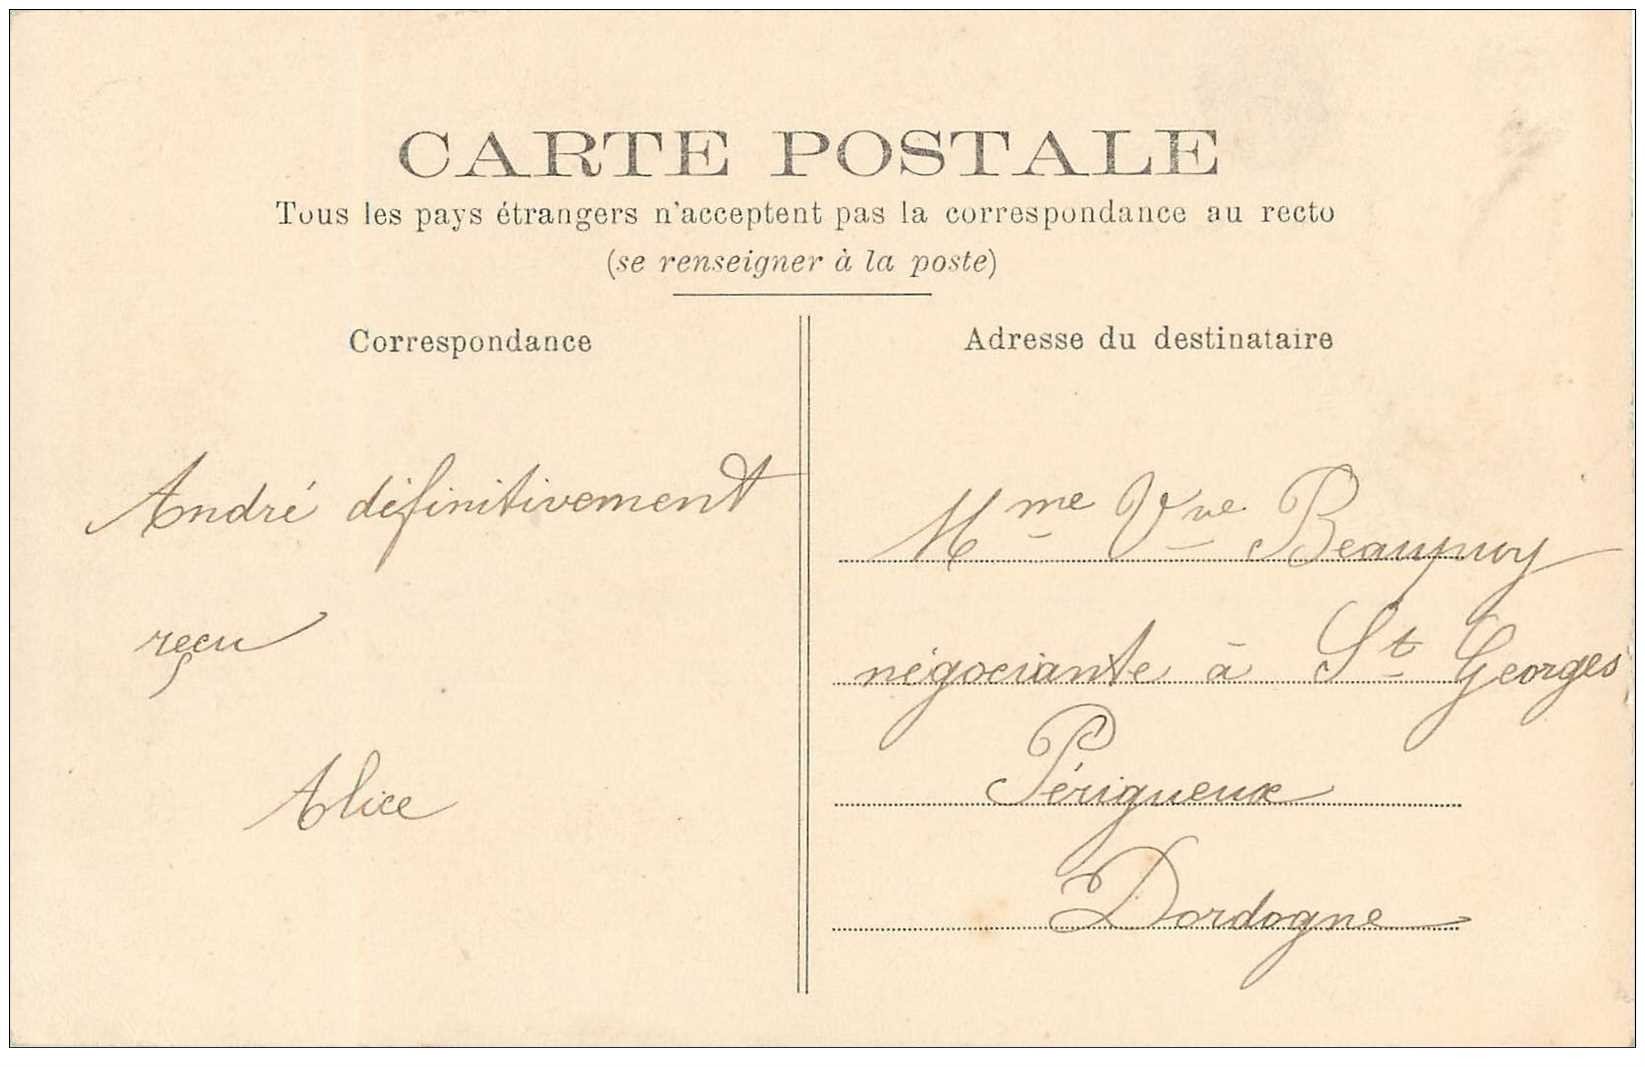 CARTE POSTALE
Tous les pays étrangers n'acceptent pas la correspondance au recto
(se renseigner à la poste)
Correspondance
André définitivement
reçu
Alice
Adresse du destinataire
Mme Vve Beaupuy
négociante à St Georges
Périgueux
Dordogne